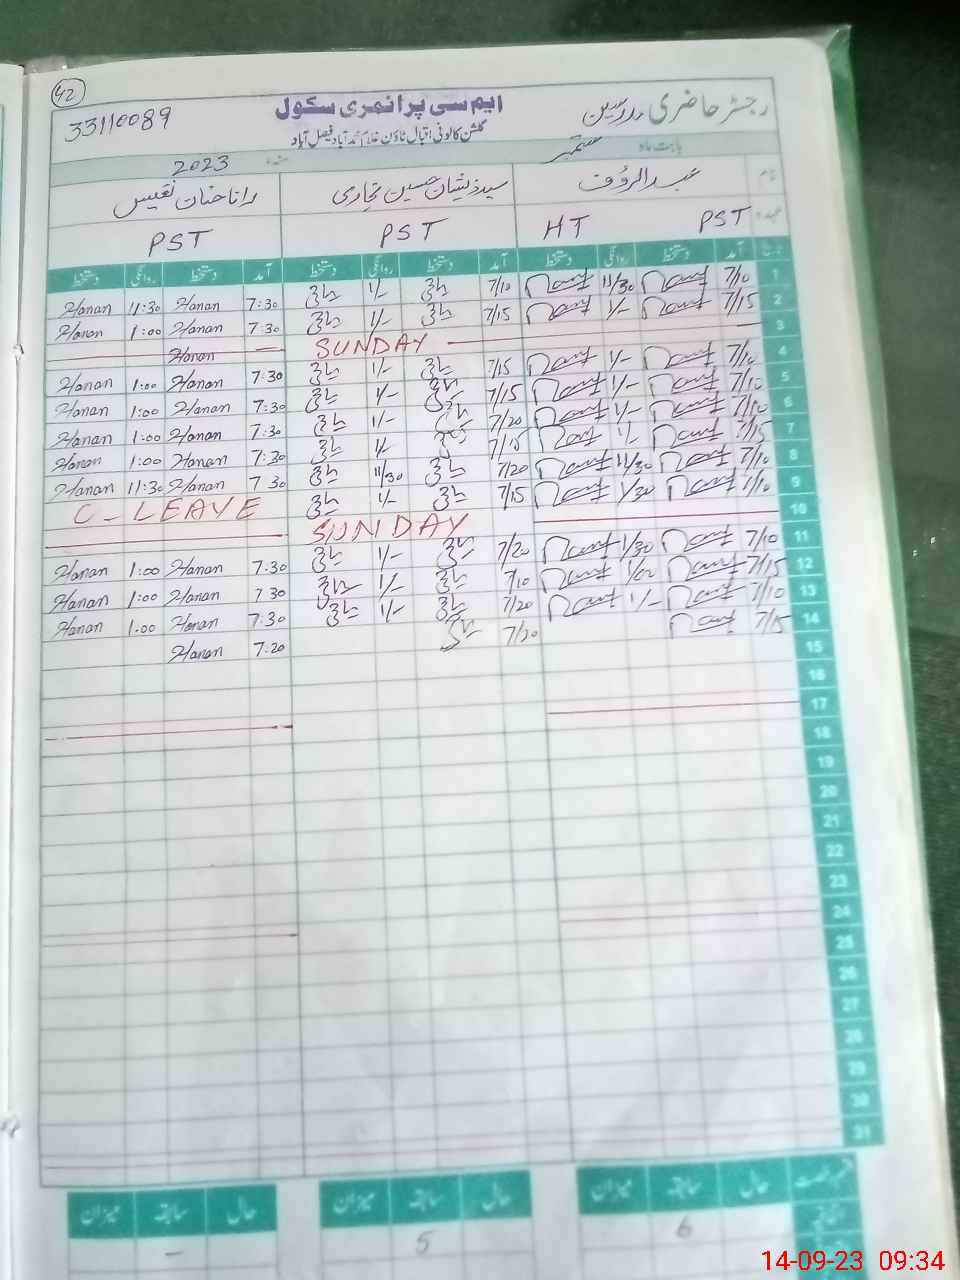 42
رجسٹر حاضری مدرسین ایم سی پرائمری سکول 33110089
گلشن کالونی اقبال ٹاؤن غلام محمد آباد فیصل آباد
بابت ماہ ستمبر 2023
نام عبدالرؤف سید ذیشان حسین بخاری رانا حنان نفیس
عہدہ PST HT PST PST
تاریخ آمد دستخط روانگی دستخط آمد دستخط روانگی دستخط آمد دستخط روانگی دستخط
1 7/10 Rauf 11/30 Rauf 7/10 1/- 7:30 Hanan 11:30 Hanan
2 7/15 Rauf 1/- Rauf 7/15 1/- 7:30 Hanan 1:00 Hanan
3 SUNDAY Hanan
4 7/10 Rauf 1/- Rauf 7/15 1/- 7:30 Hanan 1:00 Hanan
5 7/10 Rauf 1/- Rauf 7/15 1/- 7:30 Hanan 1:00 Hanan
6 7/10 Rauf 1/- Rauf 7/20 1/- 7:30 Hanan 1:00 Hanan
7 7/15 Rauf 1/- Rauf 7/15 1/- 7:30 Hanan 1:00 Hanan
8 7/10 Rauf 11/30 Rauf 7/20 11/30 7 30 Hanan 11:30 Hanan
9 7/10 Rauf 1/30 Rauf 7/15 1/- C-LEAVE
10 SUNDAY
11 7/10 Rauf 1/30 Rauf 7/20 1/- 7:30 Hanan 1:00 Hanan
12 7/15 Rauf Rauf 7/10 1/- 7 30 Hanan 1:00 Hanan
13 7/10 Rauf 1/- Rauf 7/20 1/- 7:30 Hanan 1.00 Hanan
14 7/15 Rauf 7/20 7:20 Hanan
15
16
17
18
19
20
21
22
23
24
25
26
27
28
29
30
31
حال سابقہ میزان حال سابقہ میزان حال سابقہ میزان
6 5 –
14-09-23 09:34